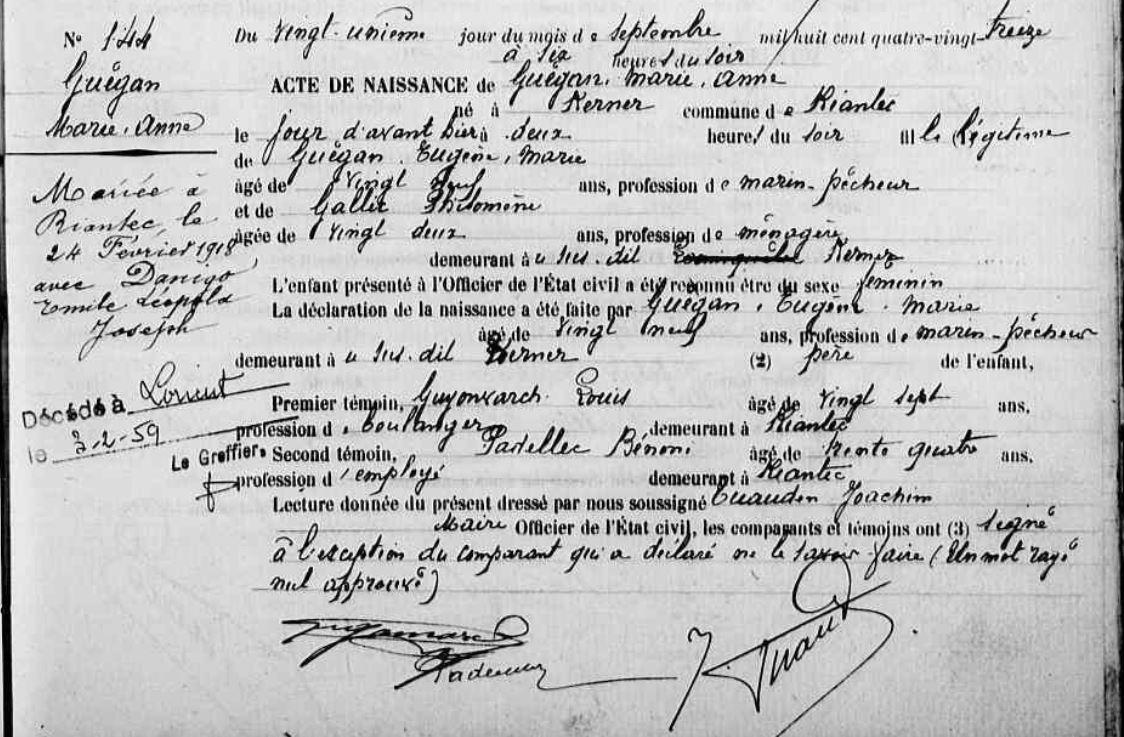 N° 144
Guégan
Marie, Anne
Mariée à
Riantec, le
24 Février 1918
avec Danigo
Emile Léopold
Joseph
Décédé à Lorient
le 3-2-59
Le Greffier
Du Vingt-unième jour du mois de Septembre mil huit cent quatre-vingt-treize
à six heures du soir
ACTE DE NAISSANCE de Guégan, Marie, Anne
né à Kerner commune de Riantec
le jour d'avant hier à deux heures du soir fille légitime
de Guégan, Eugène, Marie
âgé de vingt neuf ans, profession de marin-pêcheur
et de Gallic Philomène
âgée de vingt deux ans, profession de ménagère
demeurant au sus-dit Kerner
L'enfant présenté à l'Officier de l'État civil a été reconnu être du sexe féminin
La déclaration de la naissance a été faite par Guégan, Eugène, Marie
âgé de vingt neuf ans, profession de marin-pêcheur
demeurant au sus-dit Kerner (2) père de l'enfant,
Premier témoin, Guyonvarch Louis âgé de vingt sept ans,
profession de boulanger demeurant à Riantec
Second témoin, Padellec Bénoni âgé de trente quatre ans,
profession d'employé demeurant à Riantec
Lecture donnée du présent dressé par nous soussigné Joachim
Maire Officier de l'État civil, les comparants et témoins ont (3) signé
à l'exception du comparant qui a déclaré ne le savoir faire (Un mot rayé
nul approuvé)